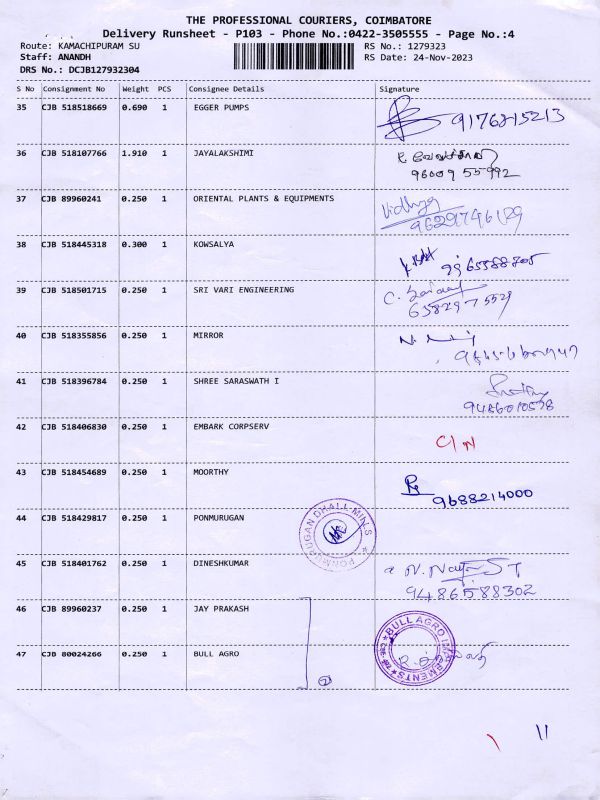 THE PROFESSIONAL COURIERS, COIMBATORE
Delivery Runsheet - P103 - Phone No.:0422-3505555 - Page No.:4
Route: KAMACHIPURAM SU RS No.: 1279323
Staff: ANANDH RS Date: 24-Nov-2023
DRS No.: DCJB127932304
S No Consignment No Weight PCS Consignee Details Signature
35 CJB 518518669 0.690 1 EGGER PUMPS
9176815213
36 CJB 518107766 1.910 1 JAYALAKSHIMI
96009 55992
37 CJB 89960241 0.250 1 ORIENTAL PLANTS & EQUIPMENTS Vidhya
38 CJB 518445318 0.300 1 KOWSALYA
39 CJB 518501715 0.250 1 SRI VARI ENGINEERING
40 CJB 518355856 0.250 1 MIRROR
41 CJB 518396784 0.250 1 SHREE SARASWATH I
9486010578
42 CJB 518406830 0.250 1 EMBARK CORPSERV
C/N
43 CJB 518454689 0.250 1 MOORTHY
9688214000
44 CJB 518429817 0.250 1 PONMURUGAN PONMURUGAN DHALL MILLS
45 CJB 518401762 0.250 1 DINESHKUMAR
9486588302
46 CJB 89960237 0.250 1 JAY PRAKASH
47 CJB 80024266 0.250 1 BULL AGRO BULL AGRO IMPLEMENTS
2
\ 11